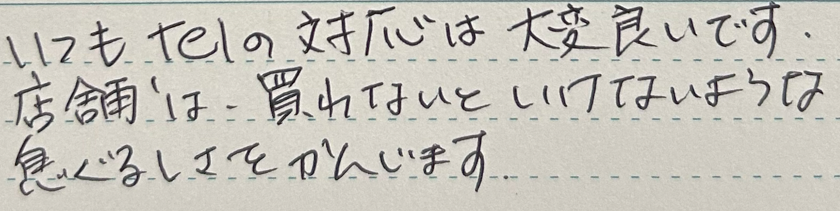 いつもtelの対応は大変良いです.
店舗は、買れてないといけてないような
息ぐるしさをかんじます.